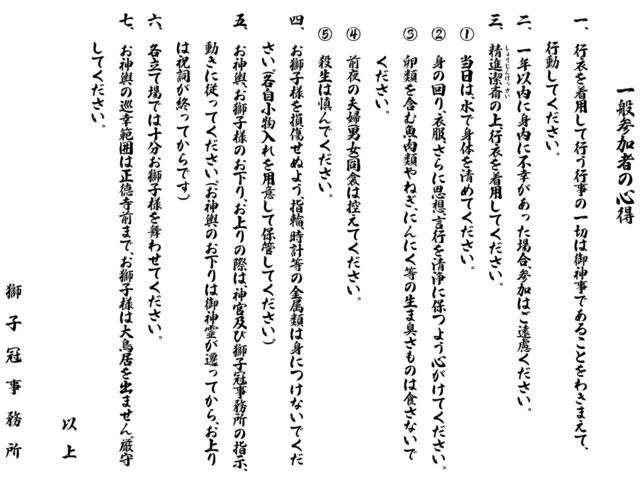 一般参加者の心得
一、行衣を着用して行う行事の一切は御神事であることをわきまえて、
行動してください。
二、一年以内に身内に不幸があった場合、参加はご遠慮ください。
三、精進潔斎の上、行衣を着用してください。
しょうじんけっさい
①当日は、水で身体を清めてください。
②身の回り、衣服、さらに思想、言行を清浄に保つよう心がけてください。
③卵類を含む魚肉類やねぎ、にんにく等の生ま臭さものは食さないで
ください。
④前夜の夫婦(男女)同衾は控えてください。
⑤殺生は慎んでください。
四、お獅子様を損傷せぬよう、指輪、時計等の金属類は身につけないでくだ
さい。(各自小物入れを用意して保管してください)
五、お神輿、お獅子様のお下り、お上りの際は、神官及び獅子冠事務所の指示、
動きに従ってください。(お神輿のお下りは御神霊が遷ってから、お上り
は祝詞が終ってからです)
六、各立て場では十分お獅子様を舞わせてください。
七、お神輿の巡幸範囲は正徳寺前まで、お獅子様は大鳥居を出ません。厳守
してください。
以上
獅子冠事務所